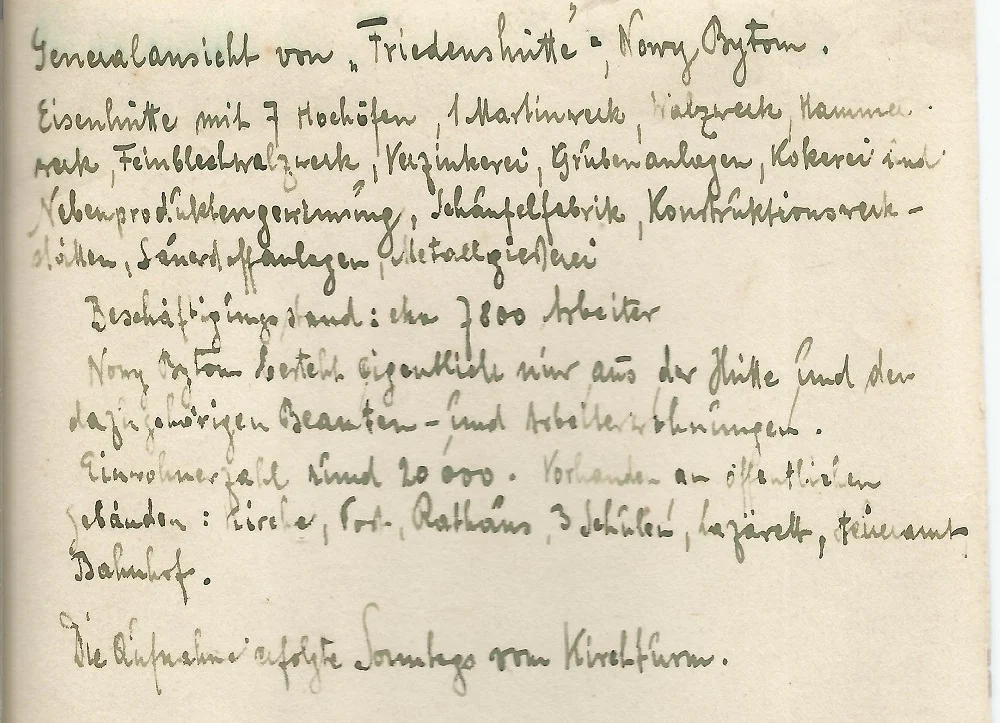 Generalansicht von „Friedenshütte", Nowy Bytom.
Eisenhütte mit 7 Hochöfen, 1 Martinwerk, Walzwerk, Hammer-
werk, Feinblechwalzwerk, Verzinkerei, Grubenanlagen, Kokerei und
Nebenproduktengewinnung, Schaufelfabrik, Konstruktionswerk-
stätten, Sauerstoffanlagen, Metallgießerei
Beschäftigungsstand: 7800 Arbeiter
Nowy Bytom besteht eigentlich nur aus der Hütte und den
dazugehörigen Beamten- und Arbeiterwohnungen.
Einwohnerzahl rund 20 000. Vorhanden an öffentlichen
Gebäuden: Kirche, Post, Rathaus, 3 Schulen, Lazarett, Steueramt,
Bahnhof.
Die Aufnahme erfolgte Sonntags vom Kirchturm.